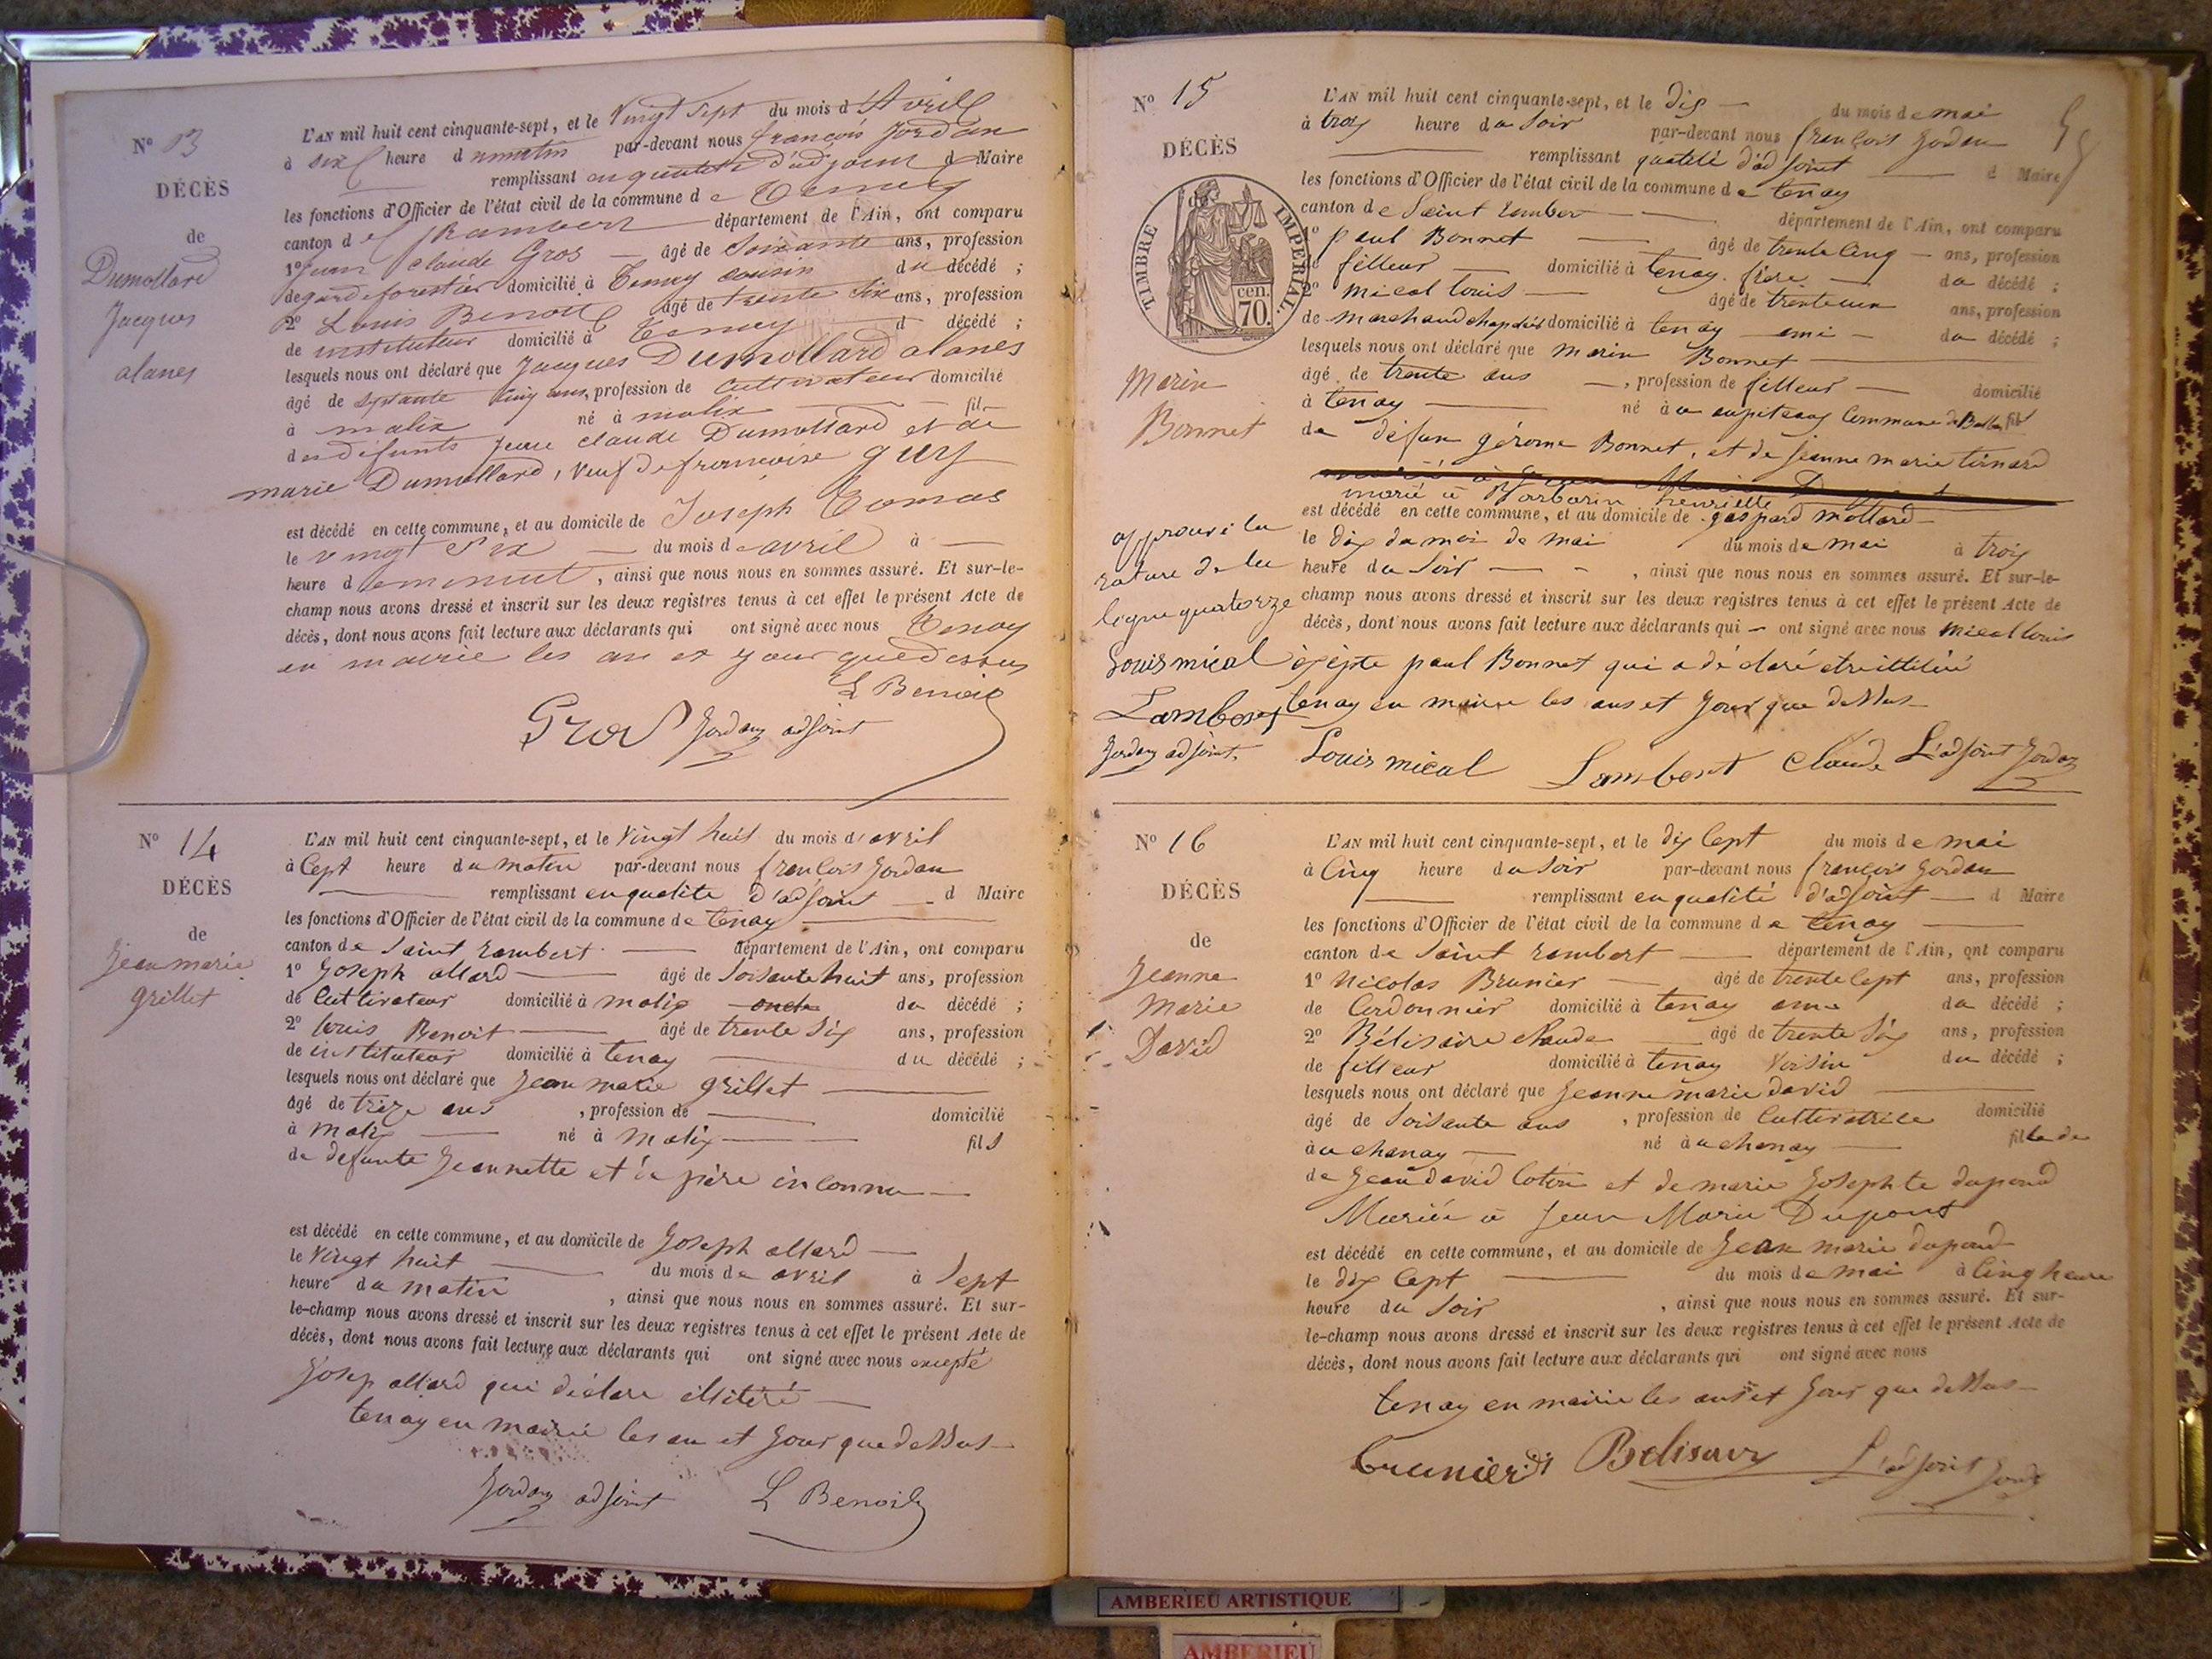 N° 13
DÉCÈS
de
Dumollard
Jacques
alanes
L'AN mil huit cent cinquante-sept, et le Vingt Sept du mois d'Avril
à six heure du matin par-devant nous françois Jordan
remplissant en qualité d'adjoint d Maire
les fonctions d'Officier de l'état civil de la commune de Tenay
canton de St Rambert département de l'Ain, ont comparu
1° Jean Claude Gros âgé de Soixante ans, profession
de garde forestier domicilié à Tenay cousin du décédé ;
2° Louis Benoit âgé de trente Six ans, profession
de instituteur domicilié à Tenay d décédé ;
lesquels nous ont déclaré que Jacques Dumollard alanes
âgé de septante cinq ans, profession de cultivateur domicilié
à malix né à malix fil
des défunts Jean claude Dumollard et de
marie Dumollard, veuf de francoise guy
est décédé en cette commune, et au domicile de Joseph Tomas
le vingt Six du mois de avril à
heure de minuit, ainsi que nous nous en sommes assuré. Et sur-le-
champ nous avons dressé et inscrit sur les deux registres tenus à cet effet le présent Acte de
décès, dont nous avons fait lecture aux déclarants qui ont signé avec nous Tenay
en mairie les an et jour que dessus
L Benoit
Gros Jordan adjoint
N° 14
DÉCÈS
de
Jean marie
grillet
L'AN mil huit cent cinquante-sept, et le Vingt huit du mois d'avril
à Cept heure du matin par-devant nous françois Jordan
remplissant en qualité d'adjoint d Maire
les fonctions d'Officier de l'état civil de la commune de tenay
canton de Saint rambert département de l'Ain, ont comparu
1° Joseph allard âgé de Soisante huit ans, profession
de Cultivateur domicilié à malix oncle du décédé ;
2° louis Benoit âgé de trente Six ans, profession
de instituteur domicilié à tenay du décédé ;
lesquels nous ont déclaré que Jean marie grillet
âgé de trèze ans, profession de domicilié
à malix né à malix fils
de defunte Jeannette et de père inconnu
est décédé en cette commune, et au domicile de Joseph allard
le Vingt huit du mois de avril à Sept
heure du matin, ainsi que nous nous en sommes assuré. Et sur-
le-champ nous avons dressé et inscrit sur les deux registres tenus à cet effet le présent Acte de
décès, dont nous avons fait lecture aux déclarants qui ont signé avec nous excepté
Josep allard qui déclare illitéré
tenay en mairie les an et Jour que desus
Jordan adjoint L Benoit
N° 15
DÉCÈS
TIMBRE IMPERIAL.
cen.
70.
Marin
Bonnet
approuvé la
rature de la
ligne quatorze
Louis mical
Lambert
Jordan adjoint.
L'AN mil huit cent cinquante-sept, et le dix du mois de mai
à trois heure du Soir par-devant nous françois Jordan
remplissant qualité d'adjoint d Maire
les fonctions d'Officier de l'état civil de la commune de tenay
canton de Saint rambert département de l'Ain, ont comparu
1° paul Bonnet âgé de trente Cinq ans, profession
de filleur domicilié à tenay frère du décédé ;
2° mical louis âgé de trente un ans, profession
de marchand chapelier domicilié à tenay ami du décédé ;
lesquels nous ont déclaré que marin Bonnet
âgé de trente ans, profession de filleur domicilié
à tenay né à Commune de fils
de défun gérome Bonnet, et de jeanne marie
marié à Barbarin henriette
est décédé en cette commune, et au domicile de gaspard mollard
le dix du moi de mai du mois de mai à trois
heure du Soir, ainsi que nous nous en sommes assuré. Et sur-le-
champ nous avons dressé et inscrit sur les deux registres tenus à cet effet le présent Acte de
décès, dont nous avons fait lecture aux déclarants qui ont signé avec nous mical louis
paul Bonnet qui a déclaré etre illitéré
tenay en mairie les ans et Jour que desus
Louis mical Lambert Claude L'adjoint Jordan
N° 16
DÉCÈS
de
Jeanne
Marie
David
L'AN mil huit cent cinquante-sept, et le dix Cept du mois de mai
à Cinq heure du Soir par-devant nous françois Jordan
remplissant en qualité d'adjoint d Maire
les fonctions d'Officier de l'état civil de la commune de tenay
canton de Saint rambert département de l'Ain, ont comparu
1° Nicolas Brunier âgé de trente Cept ans, profession
de Cordonnier domicilié à tenay ami du décédé ;
2° Bélisaire Claude âgé de trente Six ans, profession
de filleur domicilié à tenay Voisin du décédé ;
lesquels nous ont déclaré que Jeanne marie david
âgé de Soisante ans, profession de Cultivatrice domicilié
à u chanay né à u chanay fille de
de Jean david et de marie Josephte dupond
Mariée à Jean Marie Dupont
est décédé en cette commune, et au domicile de Jean marie dupond
le dix Cept du mois de mai à Cinq heure
heure du Soir, ainsi que nous nous en sommes assuré. Et sur-
le-champ nous avons dressé et inscrit sur les deux registres tenus à cet effet le présent Acte de
décès, dont nous avons fait lecture aux déclarants qui ont signé avec nous
tenay en mairie les ans et Jour que desus
brunier Belisaire L'adjoint Jordan
AMBERIEU ARTISTIQUE
AMBERIEU